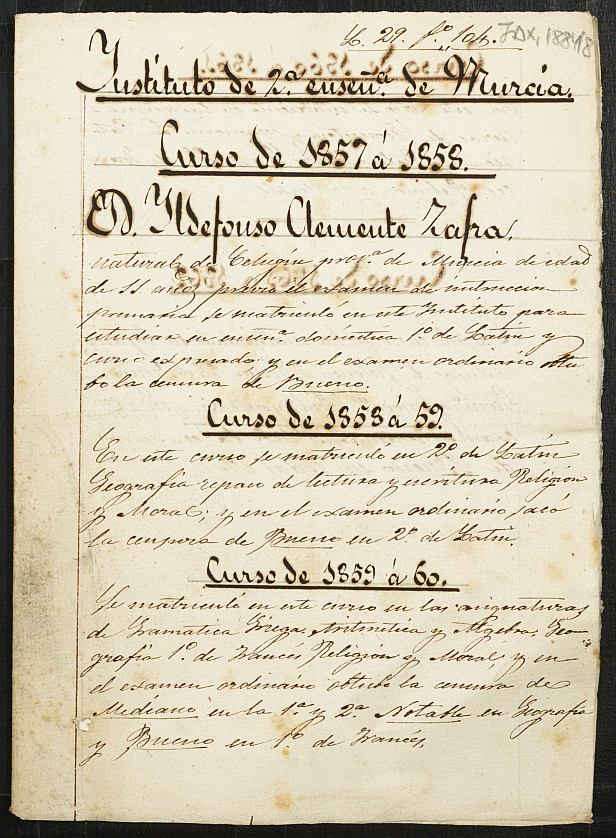 L. 29. fº 104.
JAX, 188418
Instituto de 2ª enseñª de Murcia.
Curso de 1857 á 1858.
D. Ildefonso Clemente Zafra,
natural de Cehegin provª de Murcia de edad
de 11 años previo el examen de instruccion
primaria se matriculó en este Instituto para
estudiar en enseñª doméstica 1º de Latin y
curso expresado: y en el examen ordinario obtu
bo la censura de Bueno.
Curso de 1858 á 59.
En este curso se matriculó en 2º de Latin
Geografía repaso de lectura y escritura Religion
y Moral; y en el examen ordinario sacó
la censura de Bueno en 2º de Latin.
Curso de 1859 á 60.
Se matriculó en este curso en las asignaturas
de Gramatica Griega, Aritmética y Algebra, Geo-
grafía 1º de Francés Religion y Moral, y en
el examen ordinario obtuvo la censura de
Mediano en la 1ª y 2ª Notable en Geografía
y Bueno en 1º de Francés,